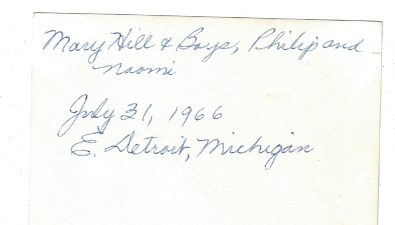 Mary Hill & Boys, Philip and
Naomi
July 31, 1966
E. Detroit, Michigan